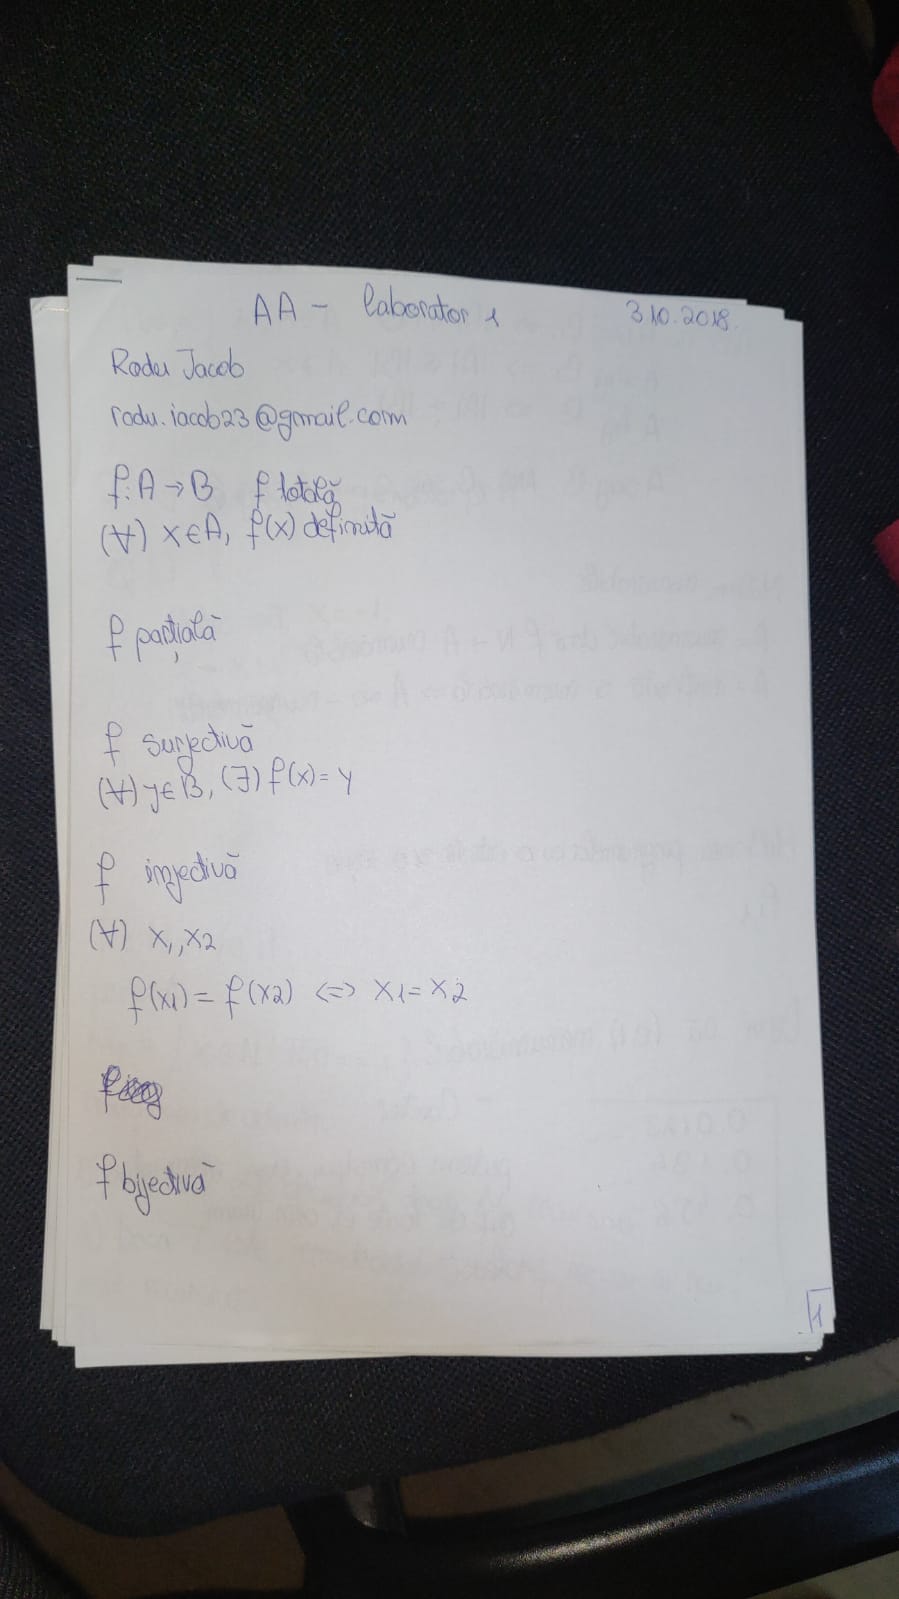 AA - laborator 1 3.10.2018.
Radu Jacob
radu.iacob23@gmail.com
f: A → B f totală
(∀) x ∈ A, f(x) definită
f parțială
f surjectivă
(∀) y ∈ B, (∃) f(x) = y
f injectivă
(∀) x1, x2
f(x1) = f(x2) <=> x1 = x2
f bijectivă
1